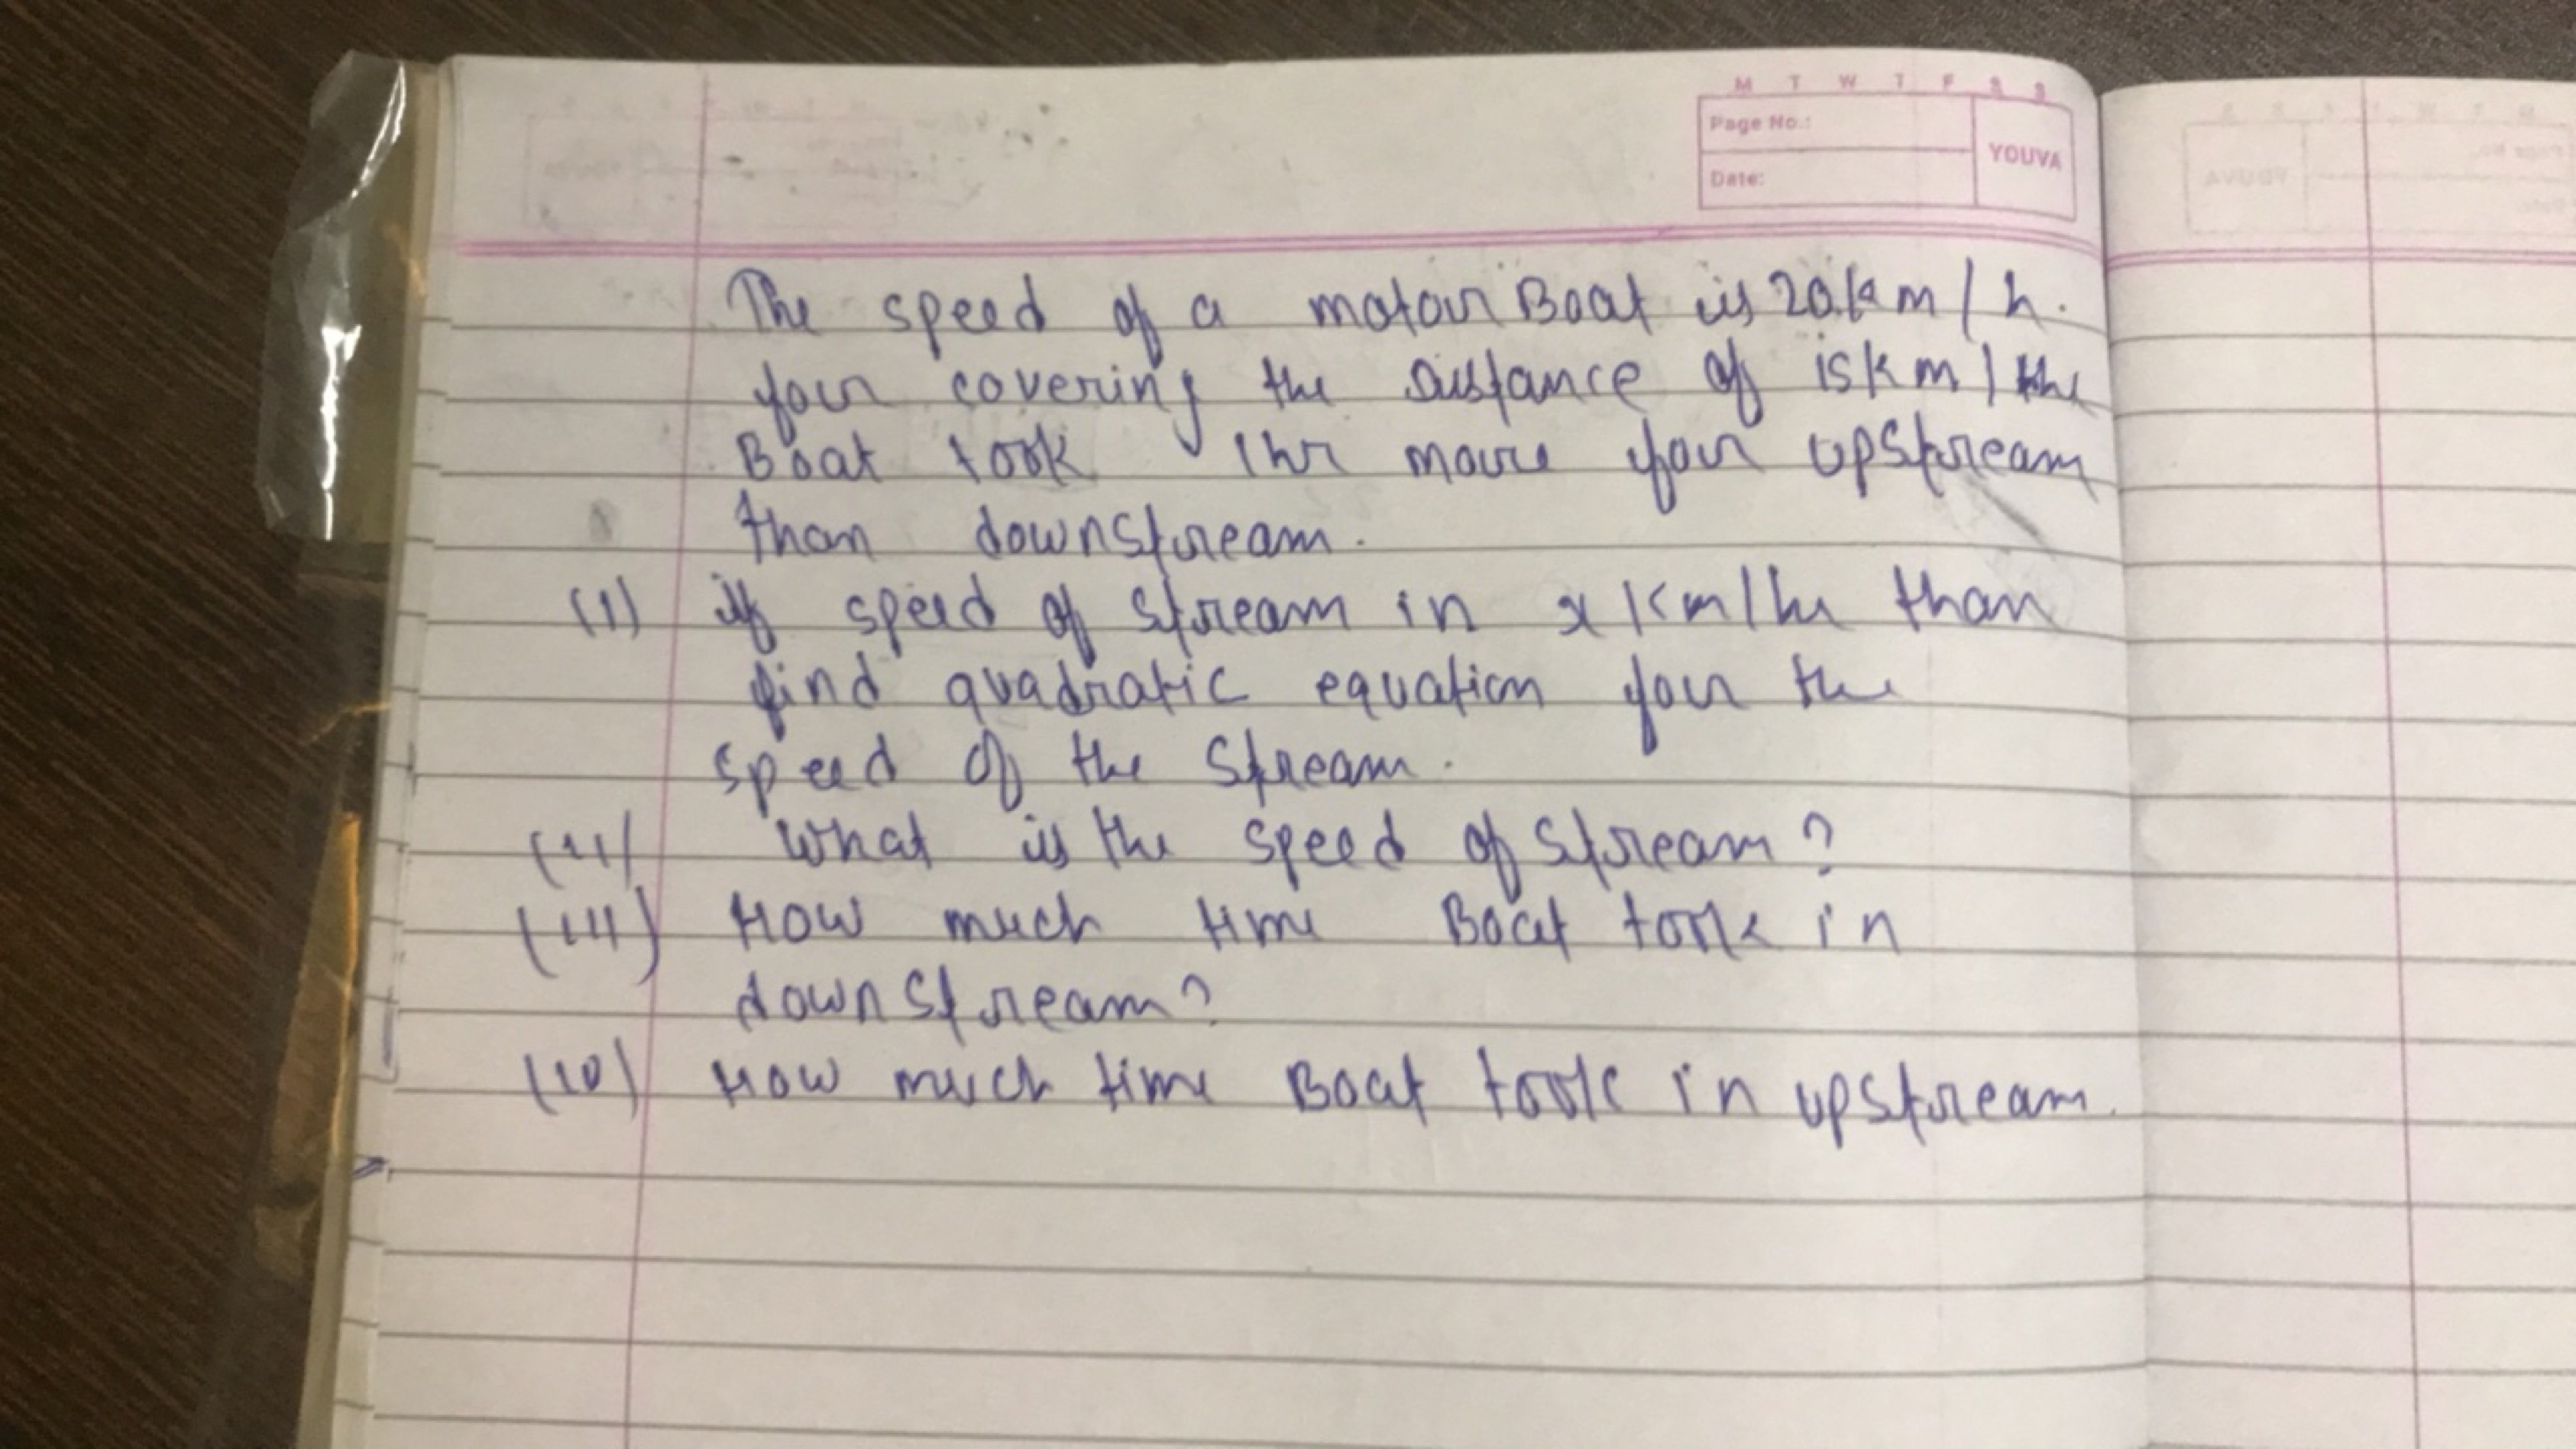 M T W T F S S
Page No.:
YOUVA
Date:
The speed of a motor Boat is 20 km / h.
for covering the Distance of 15 km / the
Boat took 1hr more for upstream
than downstream.
(I) if speed of stream in x km/hr than
find quadratic equation for the
speed of the stream.
(II) What is the speed of stream?
(III) How much time Boat took in
downstream?
(IV) How much time Boat took in upstream.